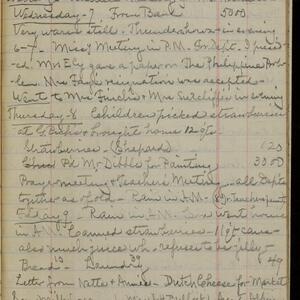 Wednesday - 7, From Bank 50.00
Very warm still. Thundershower in evening
6-7. Miss'y Meeting in P.M. Gen. Dept. I presid-
ed. Mrs Ely gave a paper on The Philippine Prob-
lem. Mrs resignation was accepted.
Went to Mrs Finch's + Mrs Sutcliffe's in evening
Thursday - 8 Children picked strawberries
at G. Bishop's brought home 12 qts.
Strawberries - Shepard 1 20
Pd. Mr Dibble for Painting 30.00
Prayer meeting + Teacher's Meeting - all Depts
together as of old - Rain in A.M. -
Friday 9 - Rain in A.M. went home
in A.M. Canned strawberries - 11 qt cans -
also much juice wh. refuses to be jelly -
Bread 10 Laundry 39 .49
Letter from Nettie + Annie - Dutch Cheese for Market